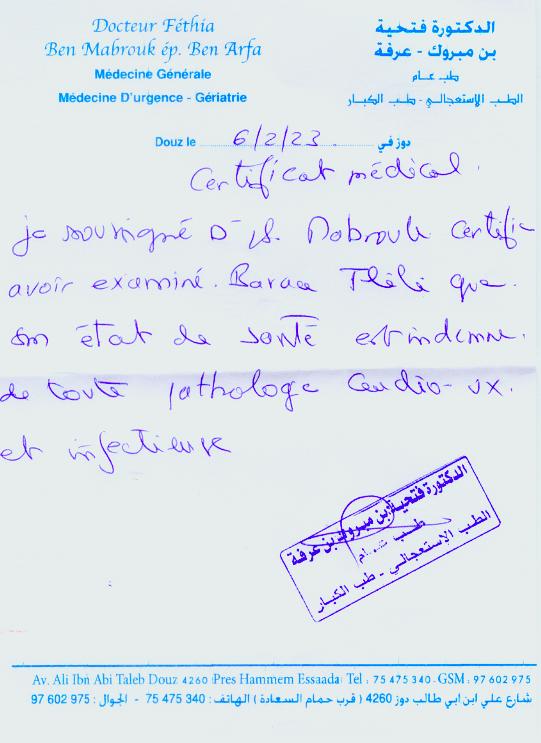 Docteur Féthia
Ben Mabrouk ép. Ben Arfa
Médecine Générale
Médecine D'urgence - Gériatrie
الدكتورة فتحية
بن مبروك - عرفة
طب عام
الطب الإستعجالي - طب الكبار
Douz le 6/2/23 دوز في
Certificat médical.
je soussigné Dr Mabrouk certifie
avoir examiné. Baraa Tlili que.
son état de santé est indemne.
de toute pathologe Caudio-vx.
et infectieuse
الدكتورة فتحية بن مبروك بن عرفة
طب عام
الطب الإستعجالي - طب الكبار
Av. Ali Ibn Abi Taleb Douz 4260 (Pres Hammem Essaada) Tel : 75 475 340 - GSM : 97 602 975
شارع علي ابن ابي طالب دوز 4260 ( قرب حمام السعادة ) الهاتف : 340 475 75 - الجوال : 975 602 97